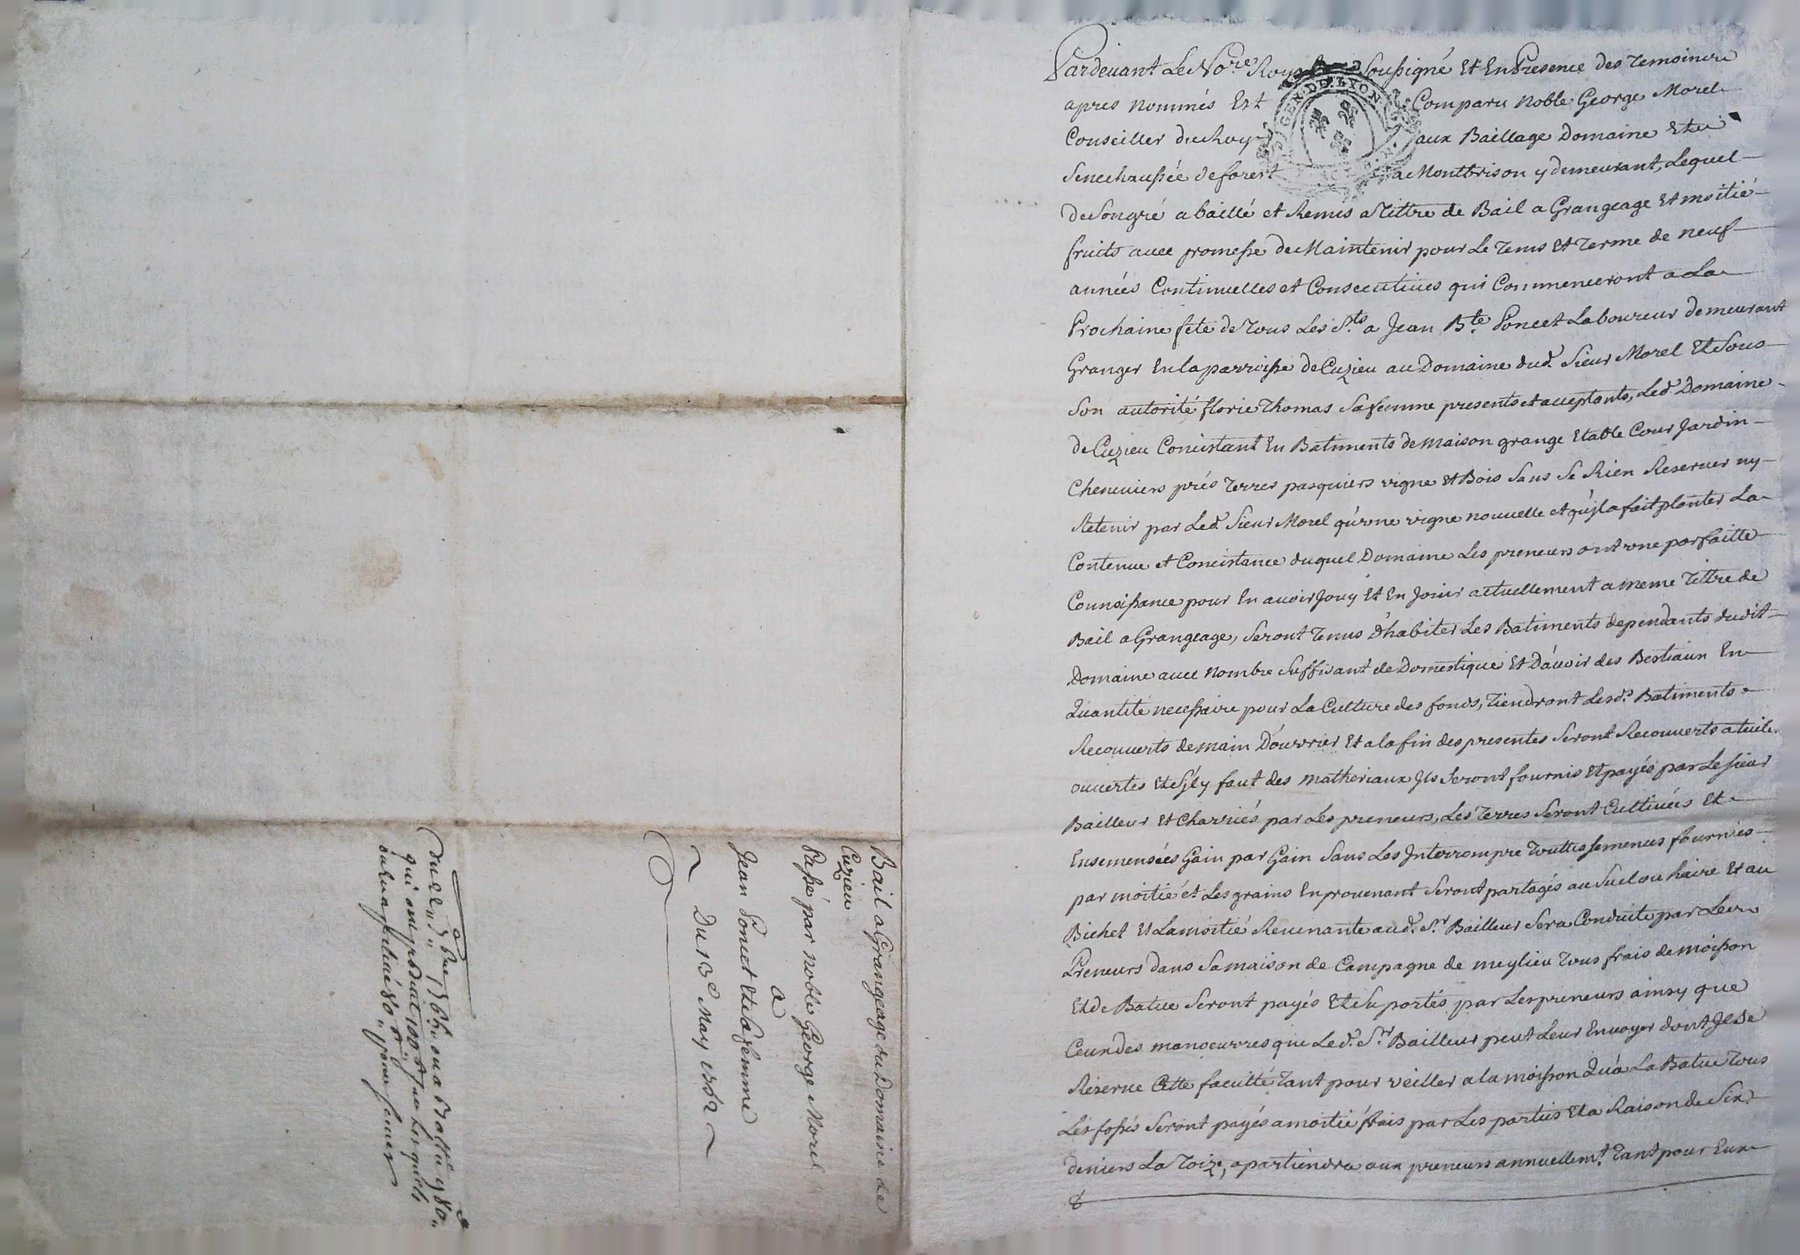 Pardevant Le No.re Royal Soussigné Et En Presence des Temoins
apres nommés Est Comparu Noble George Morel
Conseiller du Roy aux Baillage Domaine Et
Senechaussée de forest a Montbrison y demeurant, Lequel
De Son gré a baillé et Remis a Tittre de Bail a Grangeage Et moitié
fruits avec promesse de Maintenir pour Le Tems Et Terme de neuf
années Continuelles et Consecutives qui Commenceront a La
Prochaine fete de Tous Les S.ts a Jean B.te Poncet Laboureur demeurant
Granger En la parroisse de Cuzieu au Domaine dud. Sieur Morel Et Sous
Son autorité florie Thomas Sa femme presents et acceptants, Led. Domaine
de Cuzieu Concistant En Batiments de maison grange Etable Cour Jardin
Cheneviers prés Terres pasquiers vigne Et Bois Sans Se Rien Reserver ny
Retenir par Led. Sieur Morel qu'une vigne nouvelle et qu'il a fait planter La
Contenue et Concistance duquel Domaine Les preneurs ont une parfaitte
Connoissance pour En avoir Jouy Et En Jouir actuellement a meme Tittre de
Bail a Grangeage, Seront Tenus D'habiter Les Batiments dependants dudit
Domaine avec Nombre Suffisant de Domestique Et D'avoir des Bestiaux En
Quantité necessaire pour La Culture des fonds, Tiendront Lesd.s Batiments
Recouverts de main D'ouvrier Et a la fin des presentes Seront Recouverts a tuile
ouvertes Et S'il y faut des matheriaux Ils Seront fournis Et payés par Le Sieur
Bailleur Et Charriés par Les preneurs, Les Terres Seront Cultivées Et
Ensemensées Gain par Gain Sans Les Interrompre Touttes Semences fournies
par moitié et Les grains En provenant Seront partagés au Suel ou haire Et au
Bichet Et La moitié Revenante aud. S.r Bailleur Sera Conduite par Les
Preneurs dans Sa maison de Campagne de meylieu Tous frais de moisson
Et de Batue Seront payés Et Suportés par Les preneurs ainsy que
Ceux des manoeuvres que Led. S.r Bailleur peut Leur Envoyer dont Il Se
Reserve Cette faculté Tant pour veiller a la moisson Qu'a La Batue Tous
Les fossés Seront payés a moitié frais par Les parties Et a Raison de Six
deniers La Toize, apartiendra aux preneurs annuellem.t Tant pour Eux
Bail a Grangeage du Domaine de
Cuzieu
Passé par noble George Morel
A
Jean Poncet Et Sa femme
Du 13e May 1762